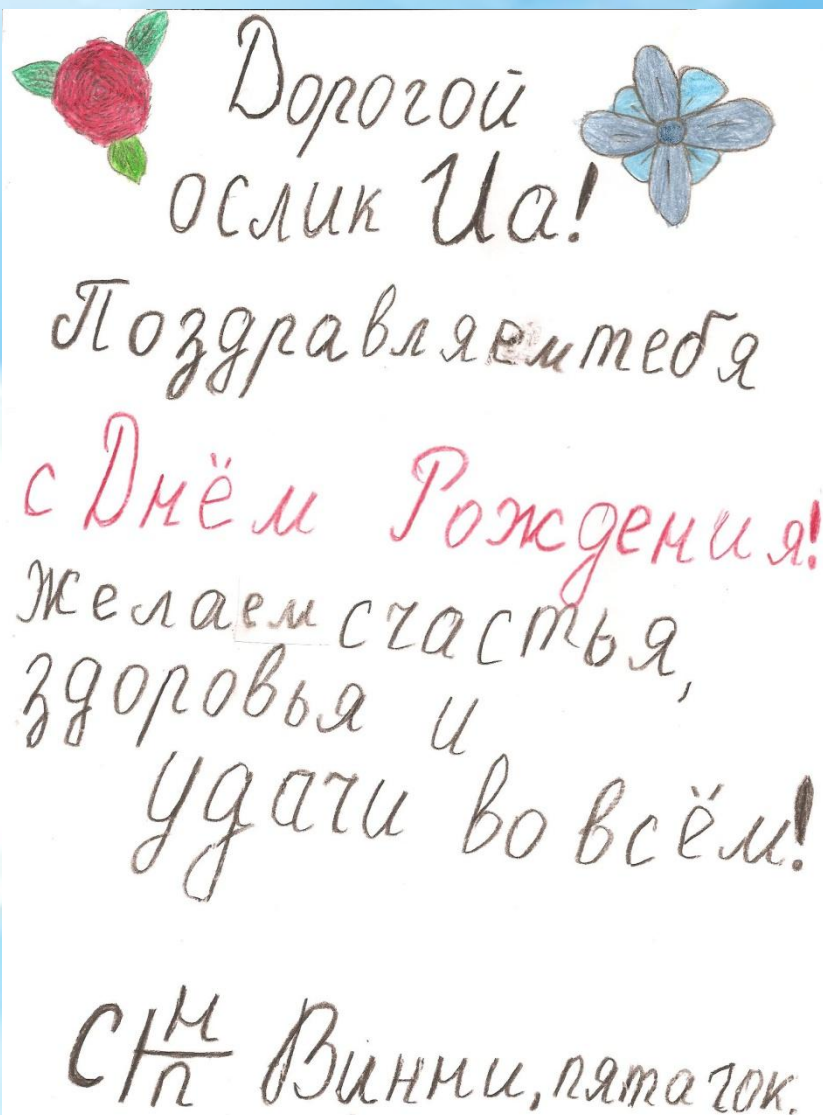 Дорогой
ослик Иа!
Поздравляем тебя
с Днём Рождения!
Желаем счастья,
здоровья и
удачи во всём!
Винни, пятачок.